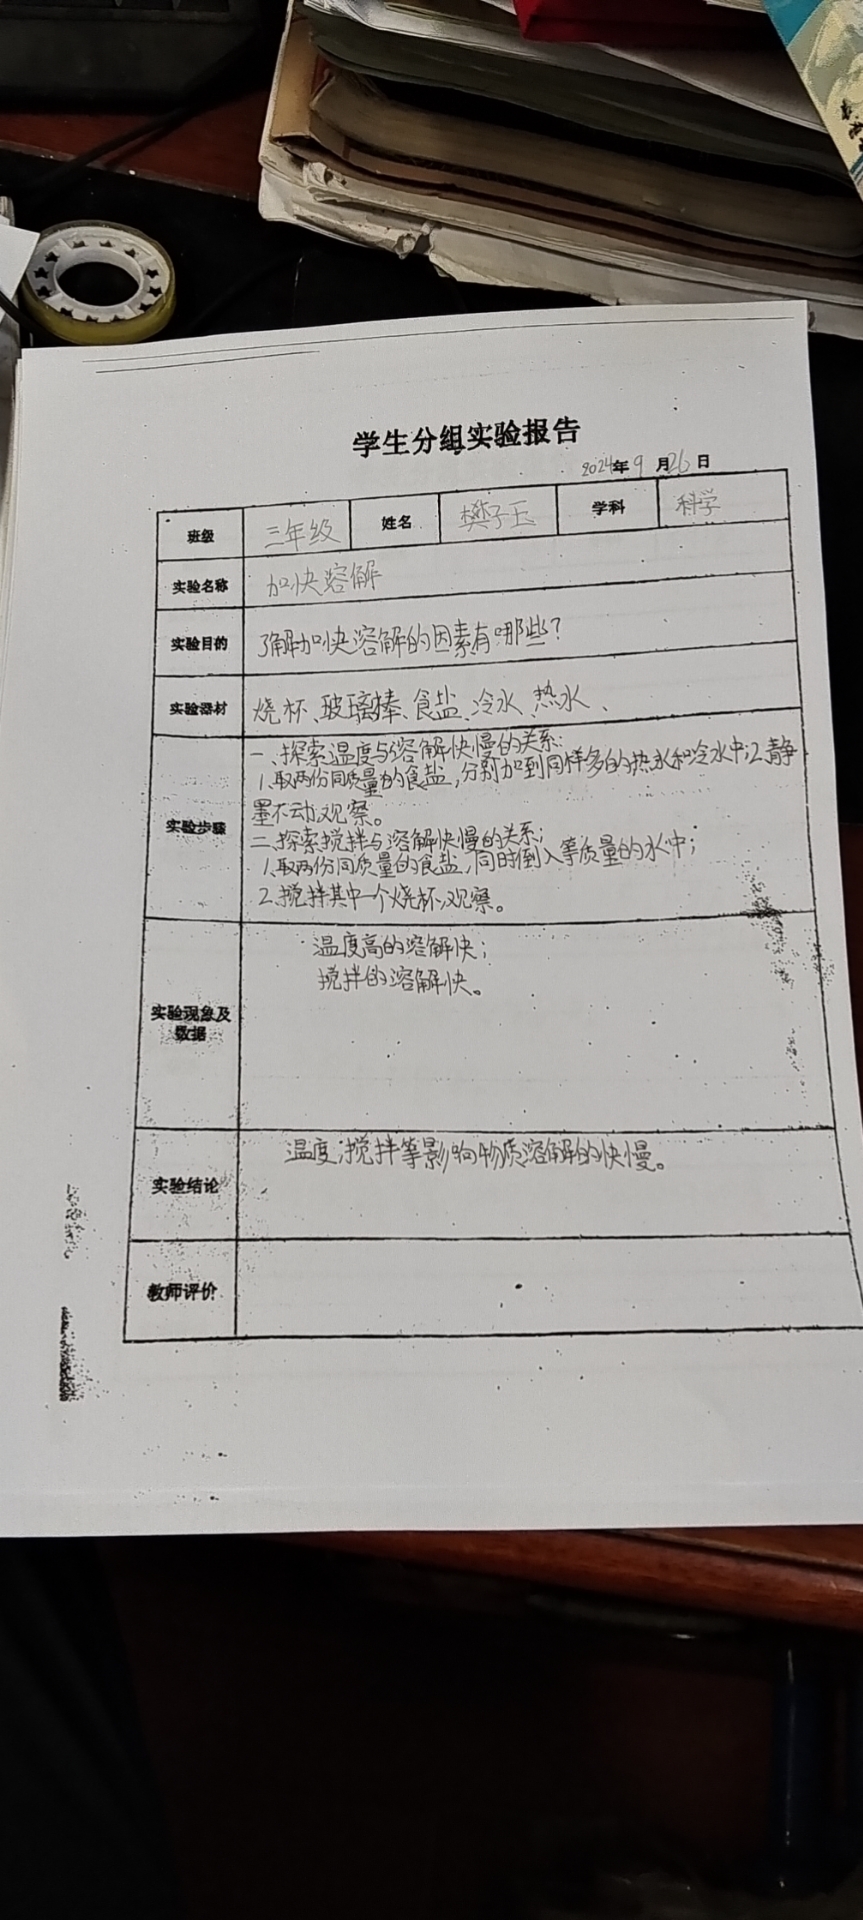 学生分组实验报告
2024年9月26日
班级 三年级 姓名 樊子玉 学科 科学
实验名称 加快溶解
实验目的 了解加快溶解的因素有哪些?
实验器材 烧杯、玻璃棒、食盐、冷水、热水、
实验步骤
一、探索温度与溶解快慢的关系:
1.取两份同质量的食盐,分别加到同样多的热水和冷水中;2.静
置不动,观察。
二、探索搅拌与溶解快慢的关系;
1.取两份同质量的食盐,同时倒入等质量的水中;
2.搅拌其中一个烧杯,观察。
实验现象及
数据
温度高的溶解快;
搅拌的溶解快。
实验结论
温度,搅拌等影响物质溶解的快慢。
教师评价